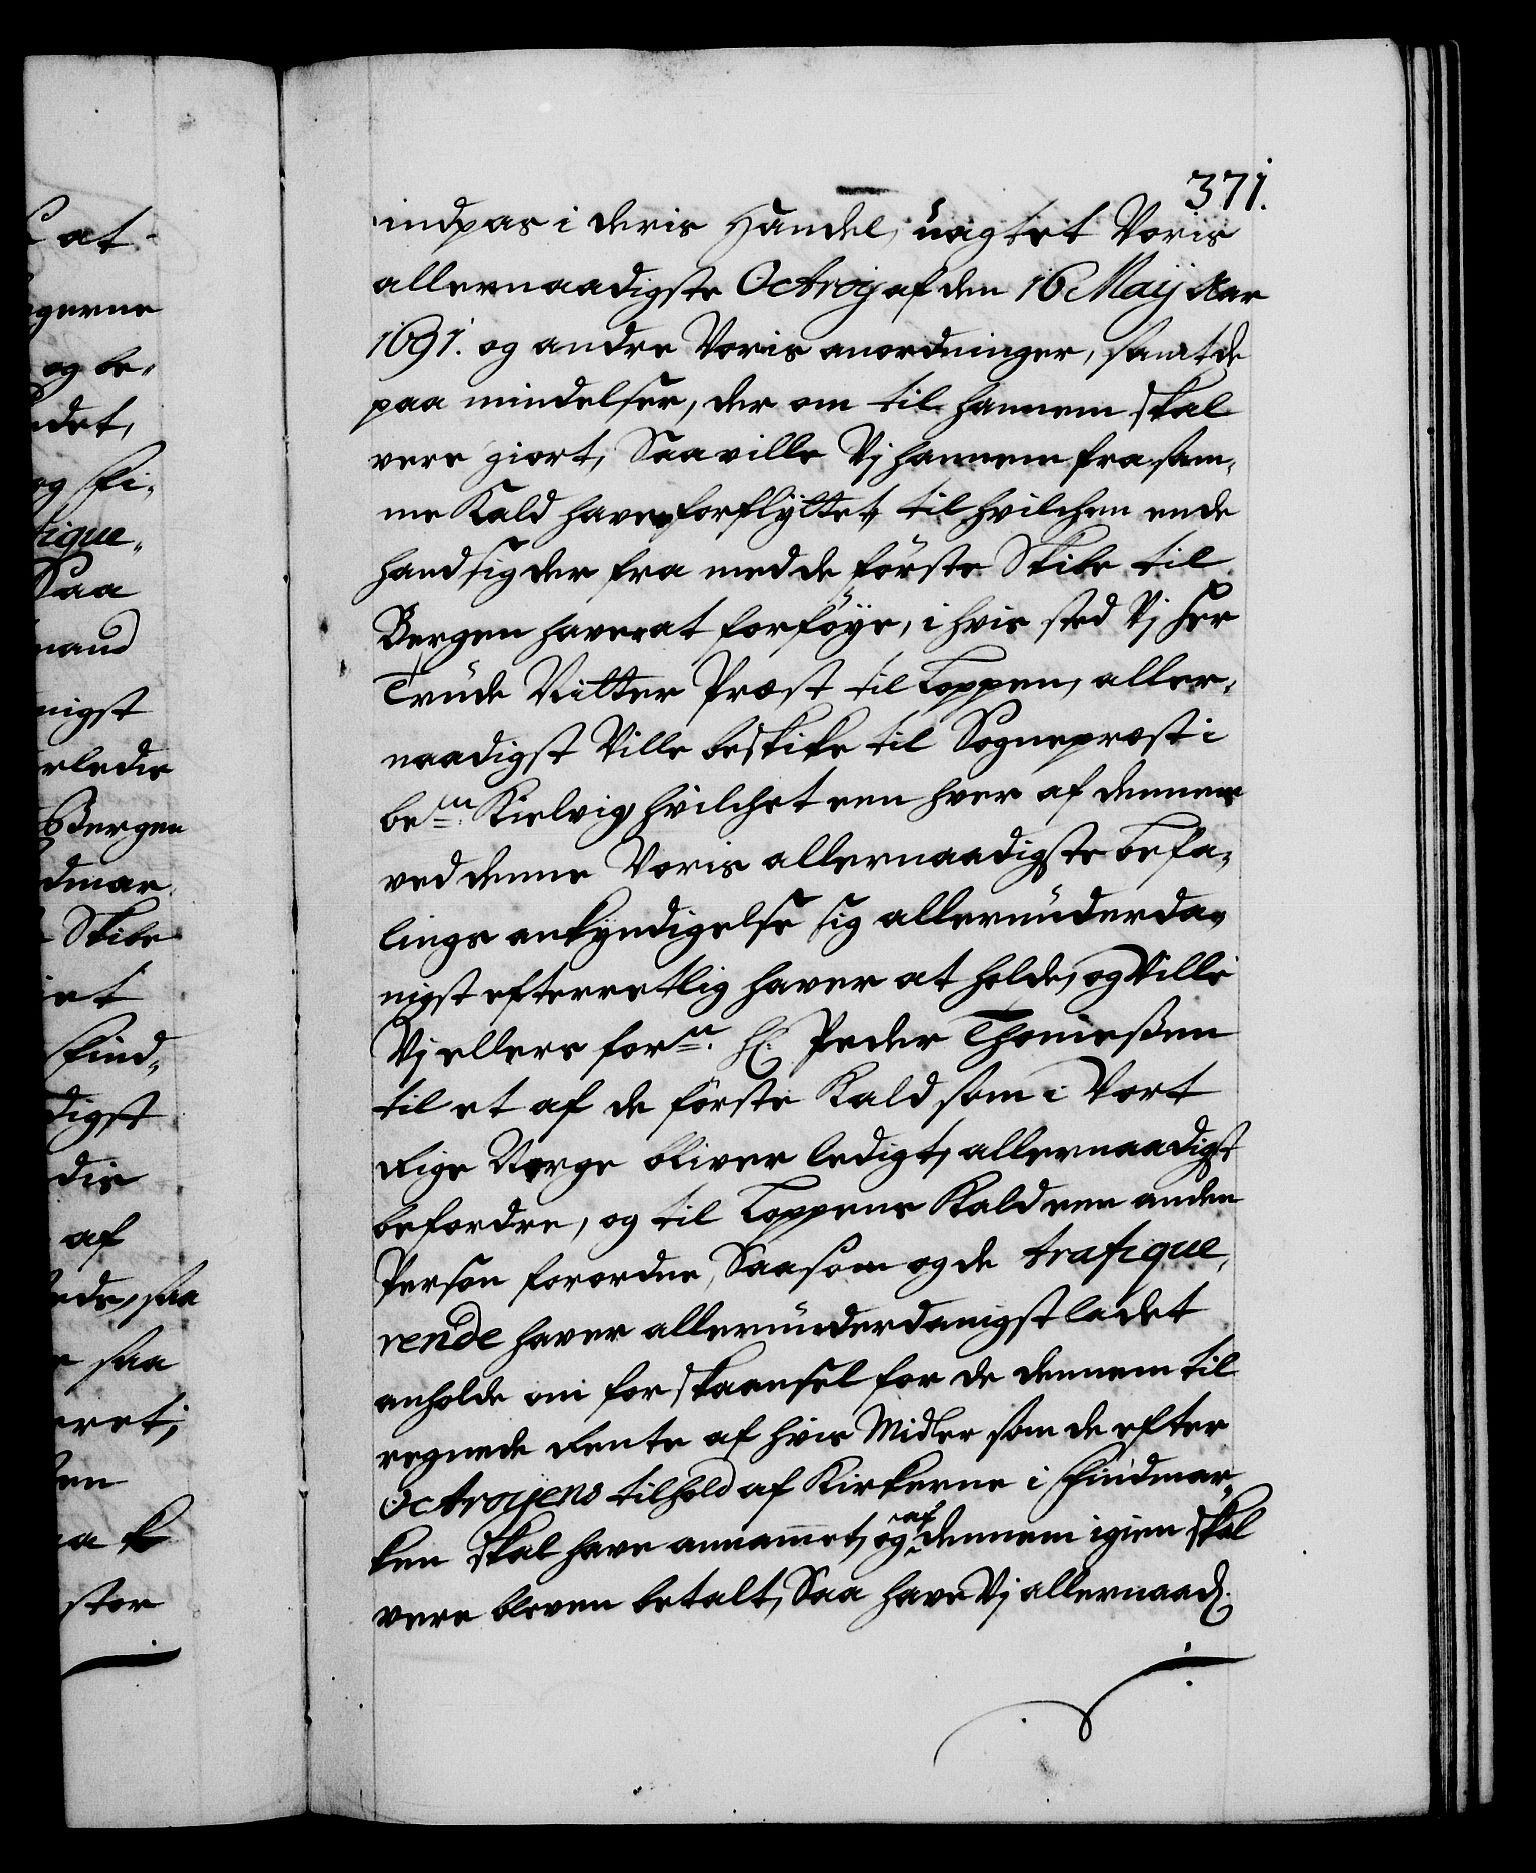 371.
indpas i deris Handel, uagtet Voris
allernaadigste Octroij af den 16 Maij Aar
1691. og andre Voris anordninger, samt de
paa mindelser, der om til hannem skal
vere giort, Saa ville Vj hannem fra sam„
me Kald have forflyttet, til hvilchen ende
hand sig der fra med de förste Skibe til
Bergen haver at forföye, i hvis sted Vj Her
Trude Nitter Præst til Loppen, aller„
naadigst Ville beskike til Sognepræst i
bem.te Kielvig, hvilchet een hver af dennem
ved denne Voris allernaadigste befa„
lings ankyndigelse sig allerunderda„
nigst efterretlig haver at holde, og Ville
Vj ellers for.ne H.r Peder Thomeßen
til et af de förste Kald som i Vort
Rige Norge bliver ledigt, allernaadigst
befordre, og til Loppens Kald een anden
Person forordne, Saasom og de trafique„
rende haver allerunderdanigst ladet
anholde om forskaansel for de dennem til
regnede Rente af hvis Midler som de efter
Octroyens tilhold af Kirkerne i Findmar„
ken skal have annamet, og af dennem igien skal
vere bleven betalt, Saa have Vj allernaad.
at
gerne
og be„
det,
og Fi„
tique„
Saa
mand
nigst
erledis
Bergen
dmar„
Skibe
et
Find„
digst
dis
af
ede, saa
saa
eret,
en
stor